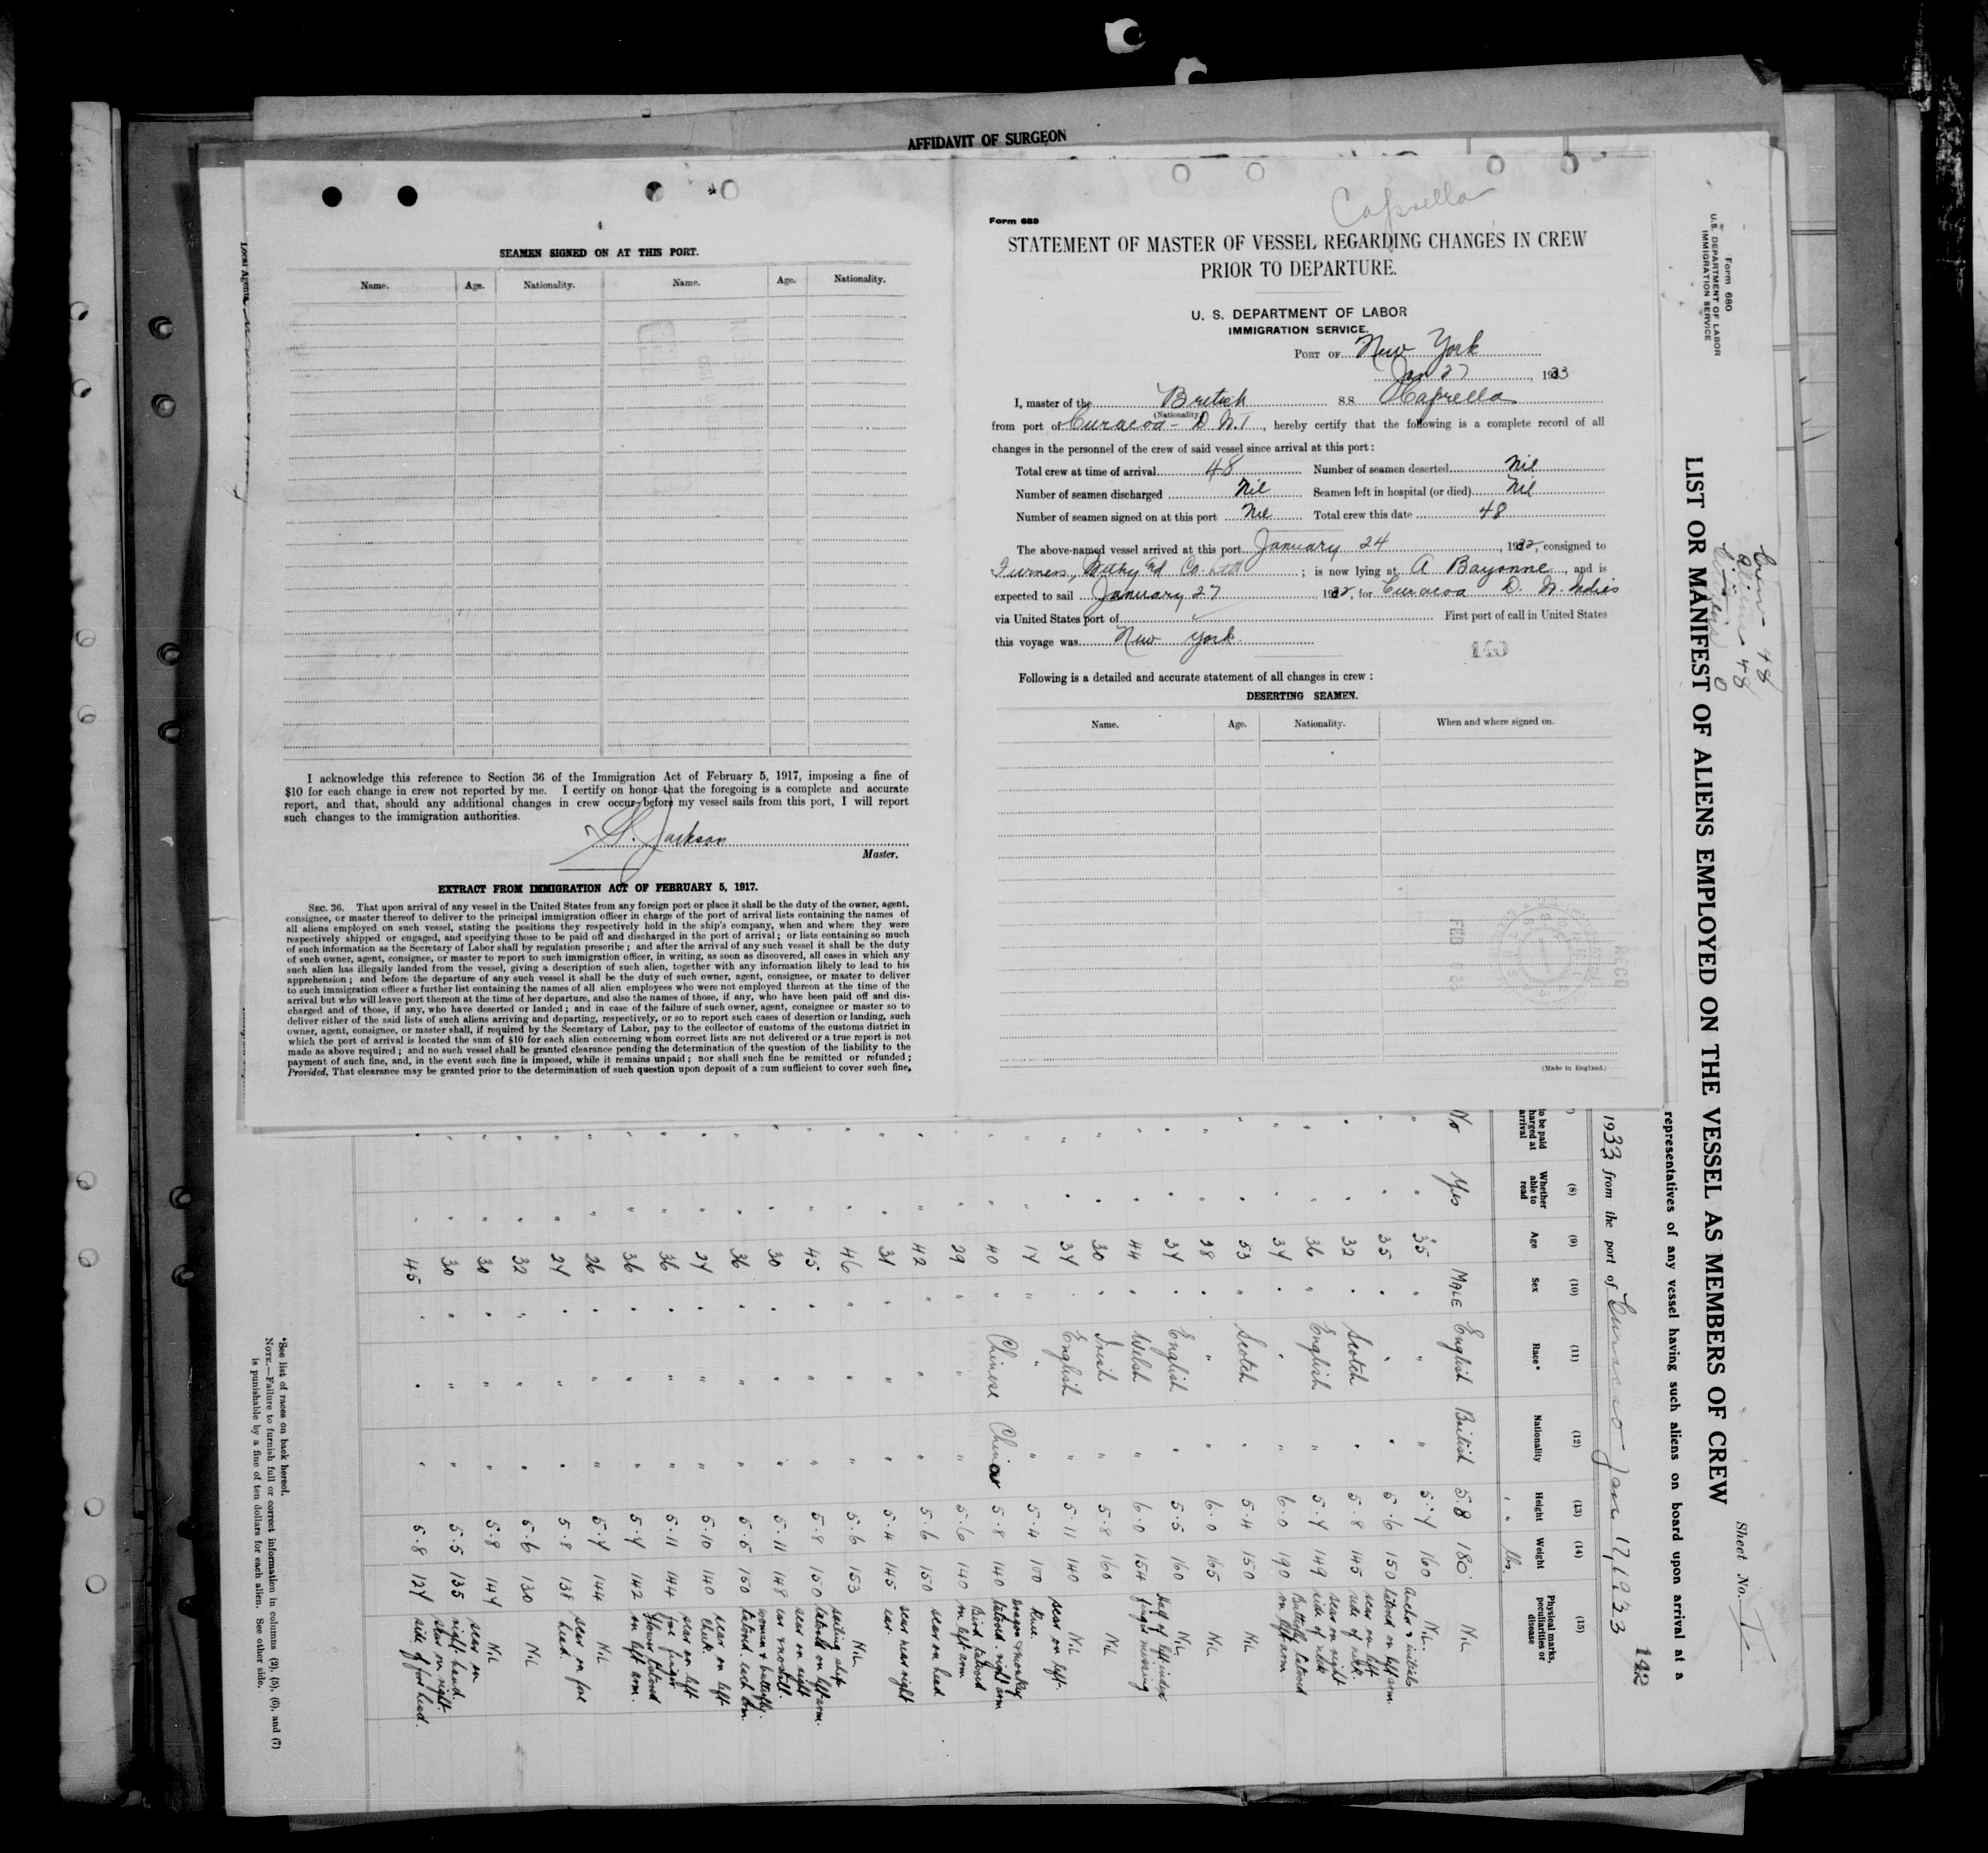 AFFIDAVIT OF SURGEON
4
SEAMEN SIGNED ON AT THIS PORT.
Name. Age. Nationality. Name. Age. Nationality.
I acknowledge this reference to Section 36 of the Immigration Act of February 5, 1917, imposing a fine of
$10 for each change in crew not reported by me. I certify on honor that the foregoing is a complete and accurate
report, and that, should any additional changes in crew occur before my vessel sails from this port, I will report
such changes to the immigration authorities.
Jackson
Master.
EXTRACT FROM IMMIGRATION ACT OF FEBRUARY 5, 1917.
SEC. 36. That upon arrival of any vessel in the United States from any foreign port or place it shall be the duty of the owner, agent,
consignee, or master thereof to deliver to the principal immigration officer in charge of the port of arrival lists containing the names of
all aliens employed on such vessel, stating the positions they respectively hold in the ship's company, when and where they were
respectively shipped or engaged, and specifying those to be paid off and discharged in the port of arrival; or lists containing so much
of such information as the Secretary of Labor shall by regulation prescribe; and after the arrival of any such vessel it shall be the duty
of such owner, agent, consignee, or master to report to such immigration officer, in writing, as soon as discovered, all cases in which any
such alien has illegally landed from the vessel, giving a description of such alien, together with any information likely to lead to his
apprehension; and before the departure of any such vessel it shall be the duty of such owner, agent, consignee, or master to deliver
to such immigration officer a further list containing the names of all alien employees who were not employed thereon at the time of the
arrival but who will leave port thereon at the time of her departure, and also the names of those, if any, who have been paid off and dis-
charged and of those, if any, who have deserted or landed; and in case of the failure of such owner, agent, consignee or master so to
deliver either of the said lists of such aliens arriving and departing, respectively, or so to report such cases of desertion or landing, such
owner, agent, consignee, or master shall, if required by the Secretary of Labor, pay to the collector of customs of the customs district in
which the port of arrival is located the sum of $10 for each alien concerning whom correct lists are not delivered or a true report is not
made as above required; and no such vessel shall be granted clearance pending the determination of the question of the liability to the
payment of such fine, and, in the event such fine is imposed, while it remains unpaid; nor shall such fine be remitted or refunded;
Provided, That clearance may be granted prior to the determination of such question upon deposit of a sum sufficient to cover such fine,
Caprella
Form 689
STATEMENT OF MASTER OF VESSEL REGARDING CHANGES IN CREW
PRIOR TO DEPARTURE.
U. S. DEPARTMENT OF LABOR
IMMIGRATION SERVICE.
PORT OF New York
Jan 27, 1933
I, master of the British S.S. Caprella
(Nationality)
from port of Curacoa - D.W.I, hereby certify that the following is a complete record of all
changes in the personnel of the crew of said vessel since arrival at this port:
Total crew at time of arrival 48 Number of seamen deserted Nil
Number of seamen discharged Nil Seamen left in hospital (or died) Nil
Number of seamen signed on at this port Nil Total crew this date 48
The above-named vessel arrived at this port January 24, 192, consigned to
Furness, Withy Co. Ltd; is now lying at Bayonne, and is
expected to sail January 27, 192, for Curacoa D. W. Indies
via United States port of First port of call in United States
this voyage was New York.
140
Following is a detailed and accurate statement of all changes in crew:
DESERTING SEAMEN.
Name. Age. Nationality. When and where signed on.
FEB
REC'D
(Made in England.)
Form 680
U.S. DEPARTMENT OF LABOR
IMMIGRATION SERVICE
Crew - 48
Aliens - 48
0
LIST OR MANIFEST OF ALIENS EMPLOYED ON THE VESSEL AS MEMBERS OF CREW
Sheet No. I
representatives of any vessel having such aliens on board upon arrival at a
142
1933 from the port of Curacao Jan 17, 1933
to be paid
harged at
arrival
(8) Whether able to read
(9) Age
(10) Sex
(11) Race*
(12) Nationality
(13) Height
(14) Weight
(15) Physical marks, peculiarities or disease
' " lbs.
No Yes MALE English British 5.8 180 Nil
" " 35 " " " 5.7 160 Nil
35 5.6 150 Anchor & initials tatood on left arm
32 Scotch 5.8 145 scar on left side of neck.
36 English 5.7 149 scar on right side of neck
37 6.0 190 Butterfly tatooed on left arm
53 Scotch 5.4 150 Nil
38 " 6.0 165 Nil
37 English 5.5 160 Nil
44 Welsh 6.0 154 Half of left index finger missing
30 Irish 5.8 160 Nil
37 English 5.11 140 Nil
17 " 5.4 100 scar on left knee.
40 Chinese Chinese 5.8 140 Dragon & monkey tatood. right arm
29 5.6 140 Bird tatooed on left arm
42 5.6 150 scar on head
31 5.4 145 scar near right ear.
46 5.6 153 Nil
45 5.8 150 sailing ship tatood on left arm.
30 5.11 148 scar on right ear &
36 5.5 150 woman & butterfly tatood. each arm.
27 5.10 140 scar on left cheek.
36 5.11 144 scar on left fore finger
36 5.7 142 flower tatood on left arm.
26 5.7 144 Nil
27 5.8 138 scar on fore head.
32 5.6 130 Nil
30 5.8 147 Nil
30 5.5 135 scar on right hand.
45 5.8 127 scar on right side of forehead.
*See list of races on back hereof.
NOTE.—Failure to furnish full or correct information in columns (2), (5), (6), and (7)
is punishable by a fine of ten dollars for each alien. See other side.
Local Agents